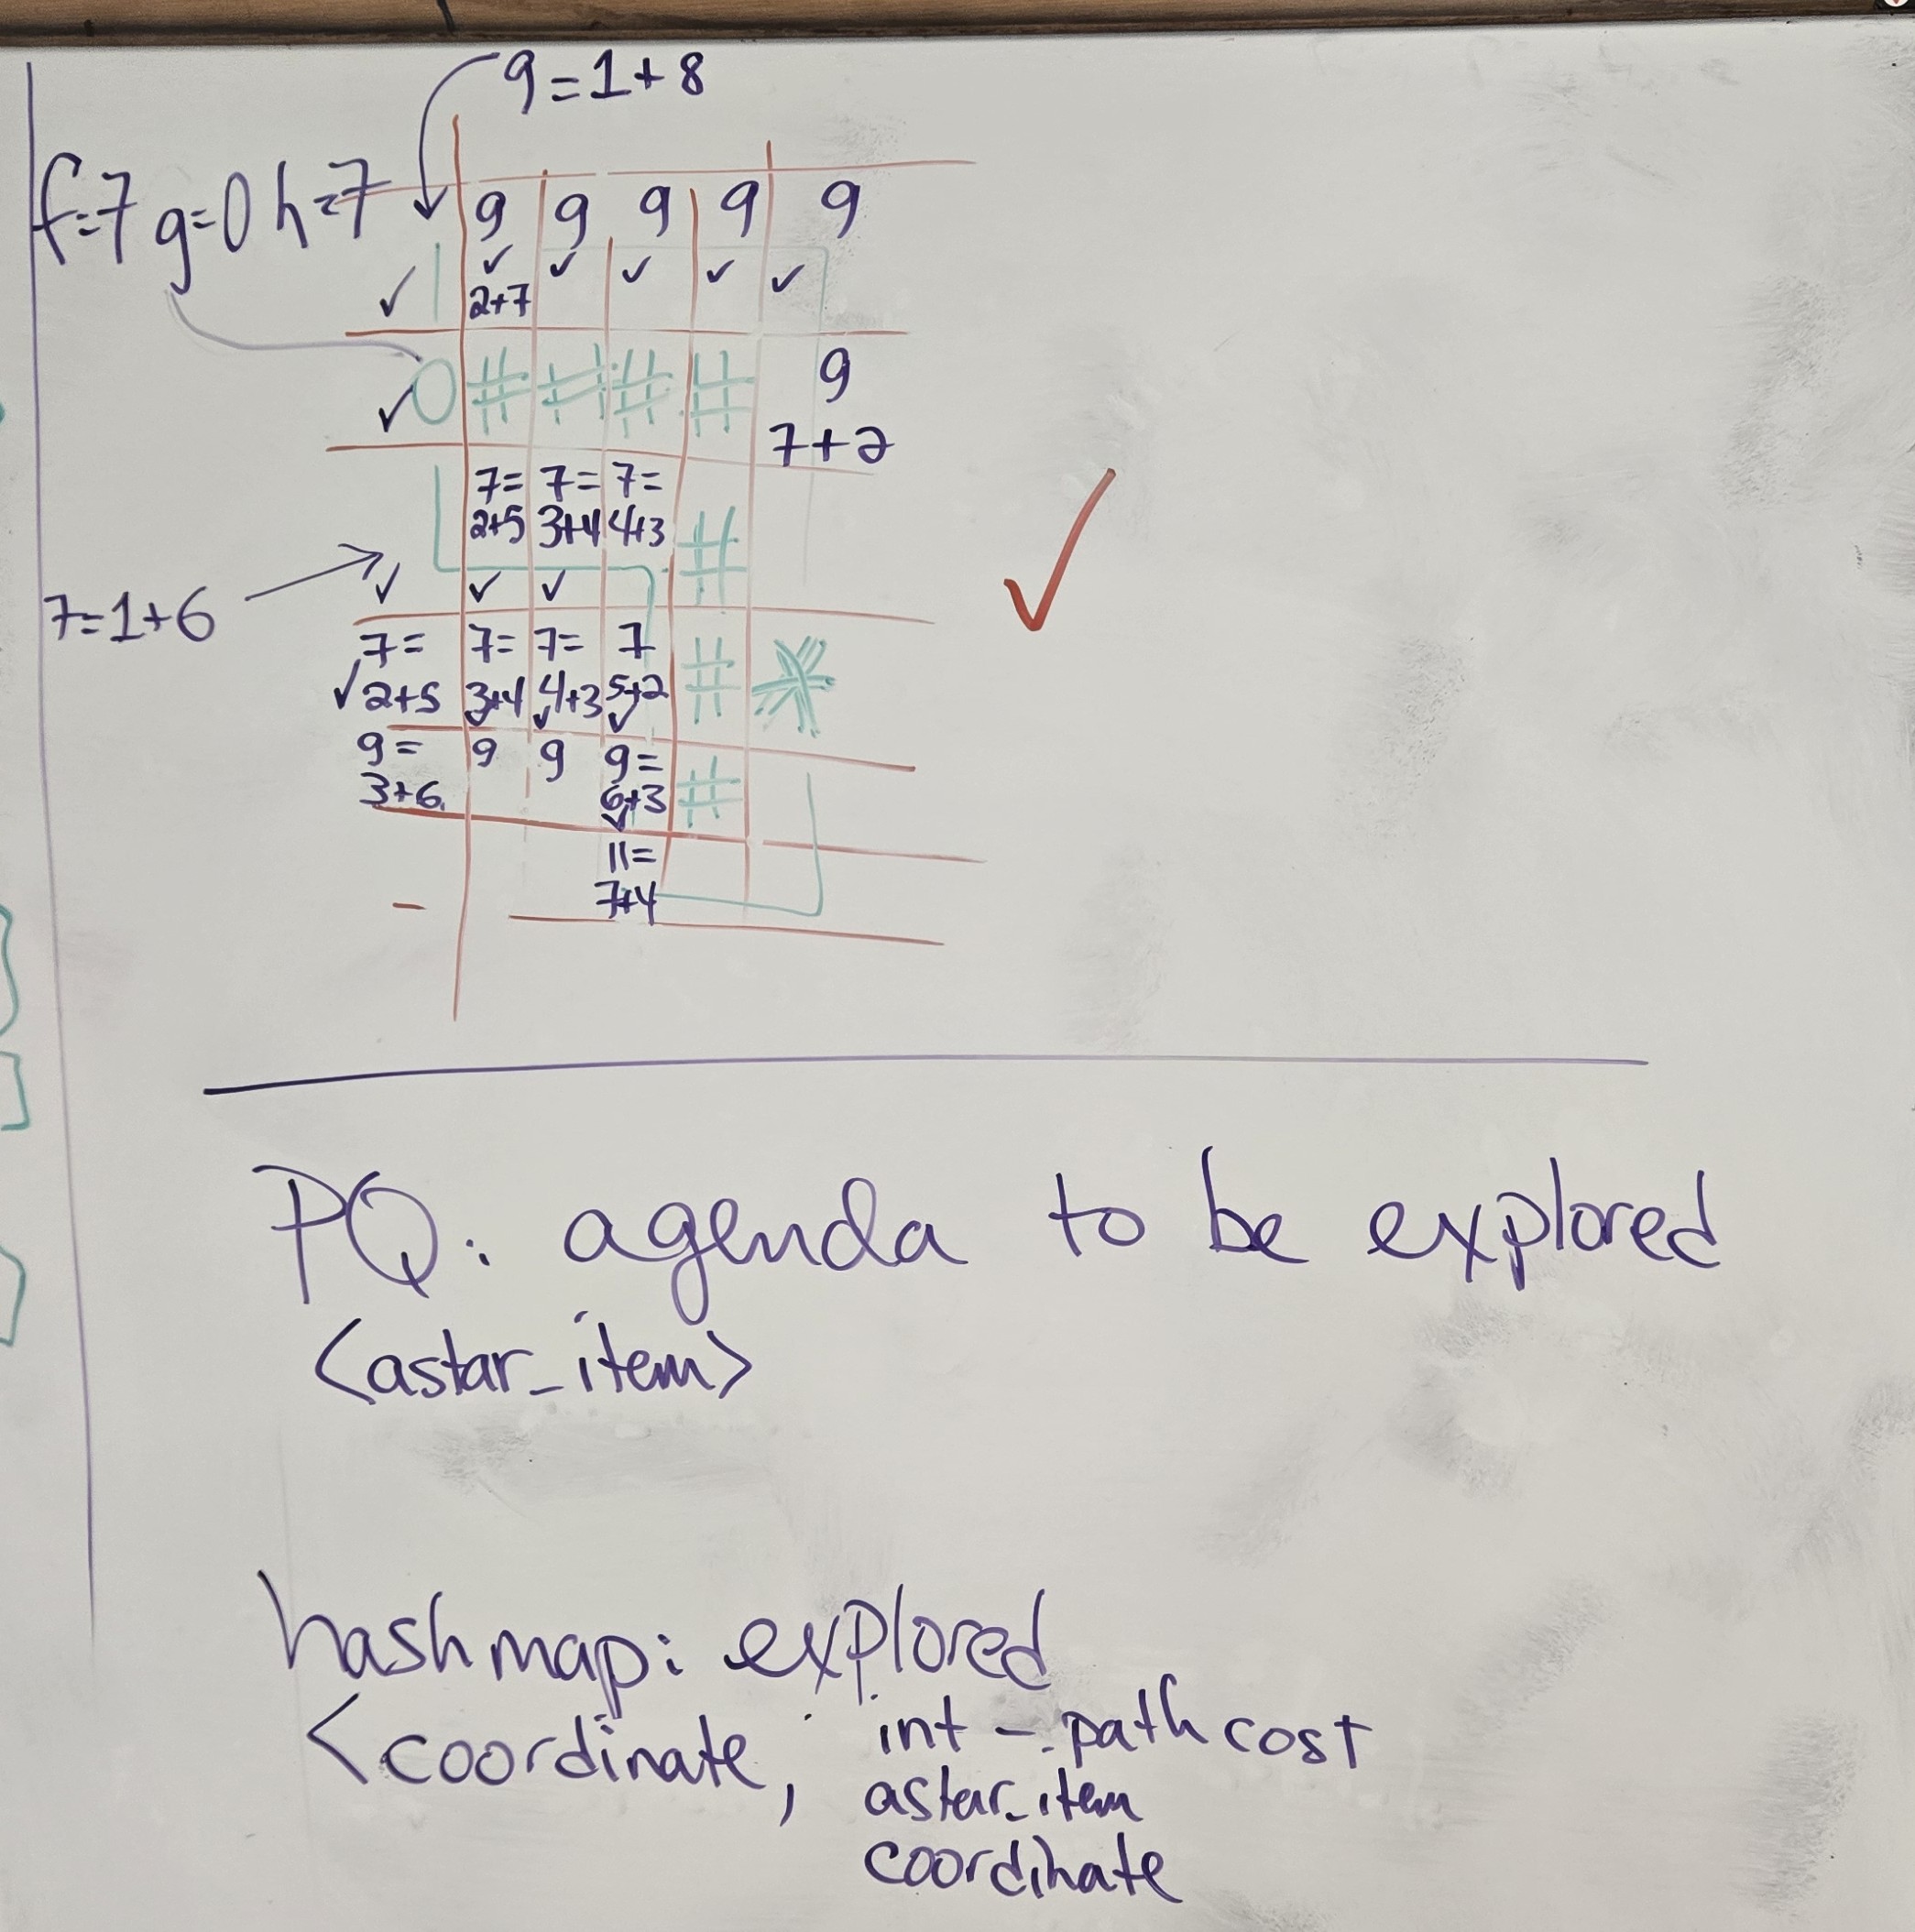 9=1+8
f=7 g=0 h=7
9 9 9 9 9
✓ ✓ ✓ ✓ ✓ ✓
2+7
✓ O # # # # 9
7+2
7= 7= 7=
2+5 3+4 4+3 #
✓ ✓ ✓
7=1+6
7= 7= 7= 7 # *
✓ 2+5 3+4 4+3 5+2
✓ ✓ ✓
9= 9 9 9= #
3+6 6+3
✓
11=
7+4
✓
PQ: agenda to be explored
<astar_item>
hashmap: explored
<coordinate, int - path cost
astar_item
coordinate